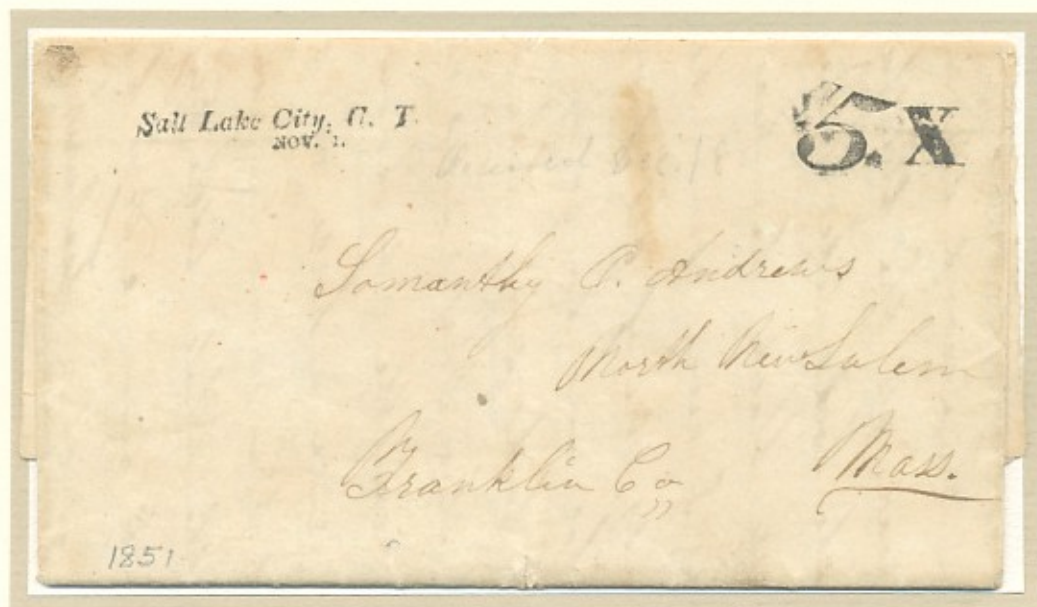 Salt Lake City, G. T.
NOV. 1.
5. X
Received Dec. 18
Somanthy P. Andrews
North New Salem
Franklin Co
Mass.
1851